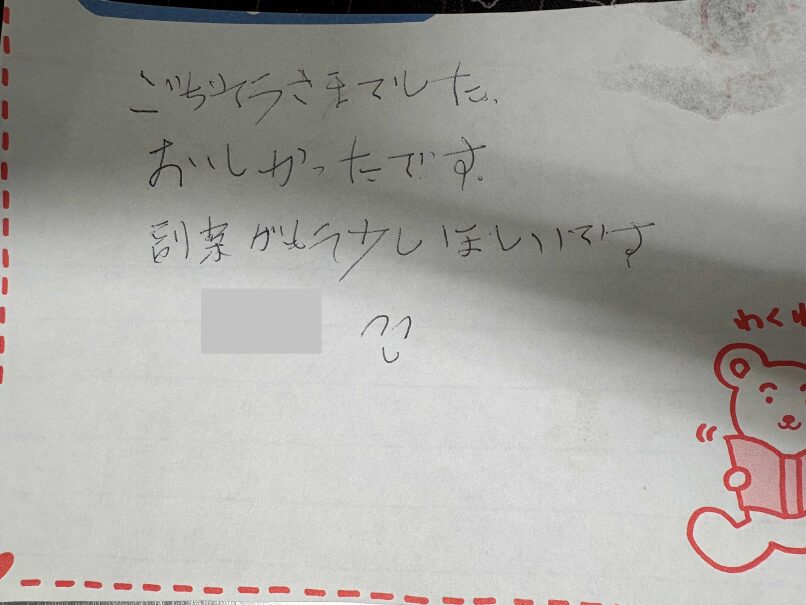 ごちそうさまでした。
おいしかったです。
副菜がもう少しほしいです
わくわ